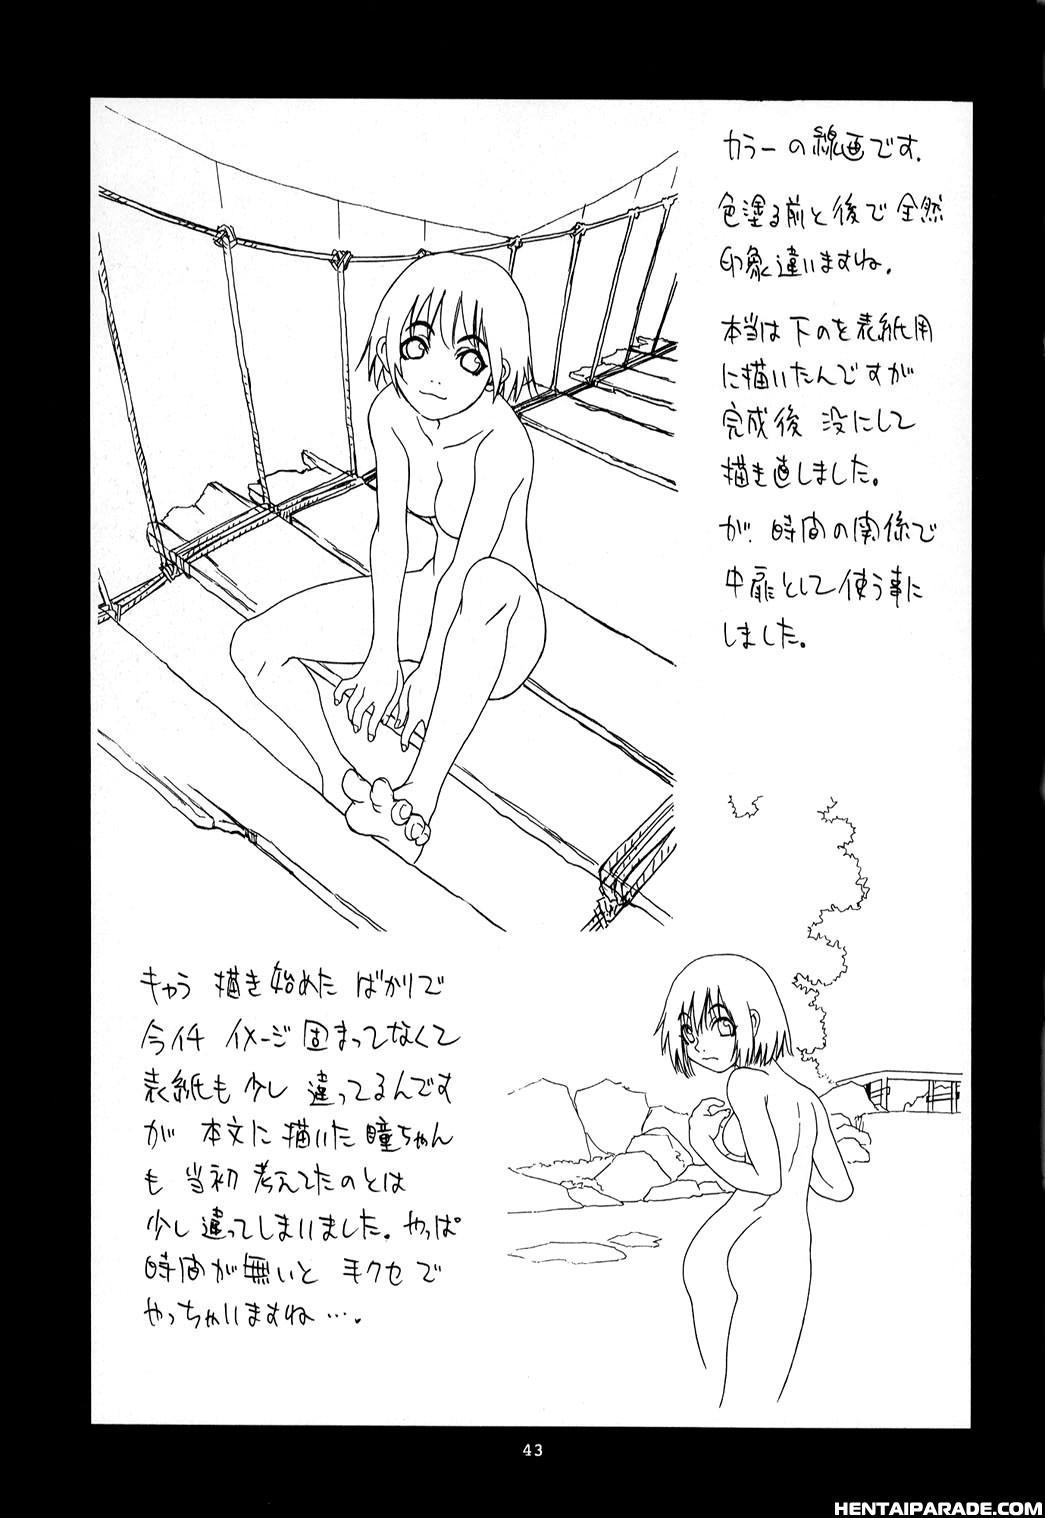 カラーの線画です.
色塗る前と後で全然
印象違いますね.
本当は下のを表紙用
に描いたんですが
完成後 没にして
描き直しました。
が. 時間の関係で
中扉として使う事に
しました。
キャラ 描き始めた ばかりで
今イチ イメージ固まってなくて
表紙も少し 違ってるんです
が 本文に描いた瞳ちゃん
も 当初 考えてたのとは
少し違ってしまいました。やっぱ
時間が無いと 手クセで
やっちゃいますね ….
43
HENTAIPARADE.COM